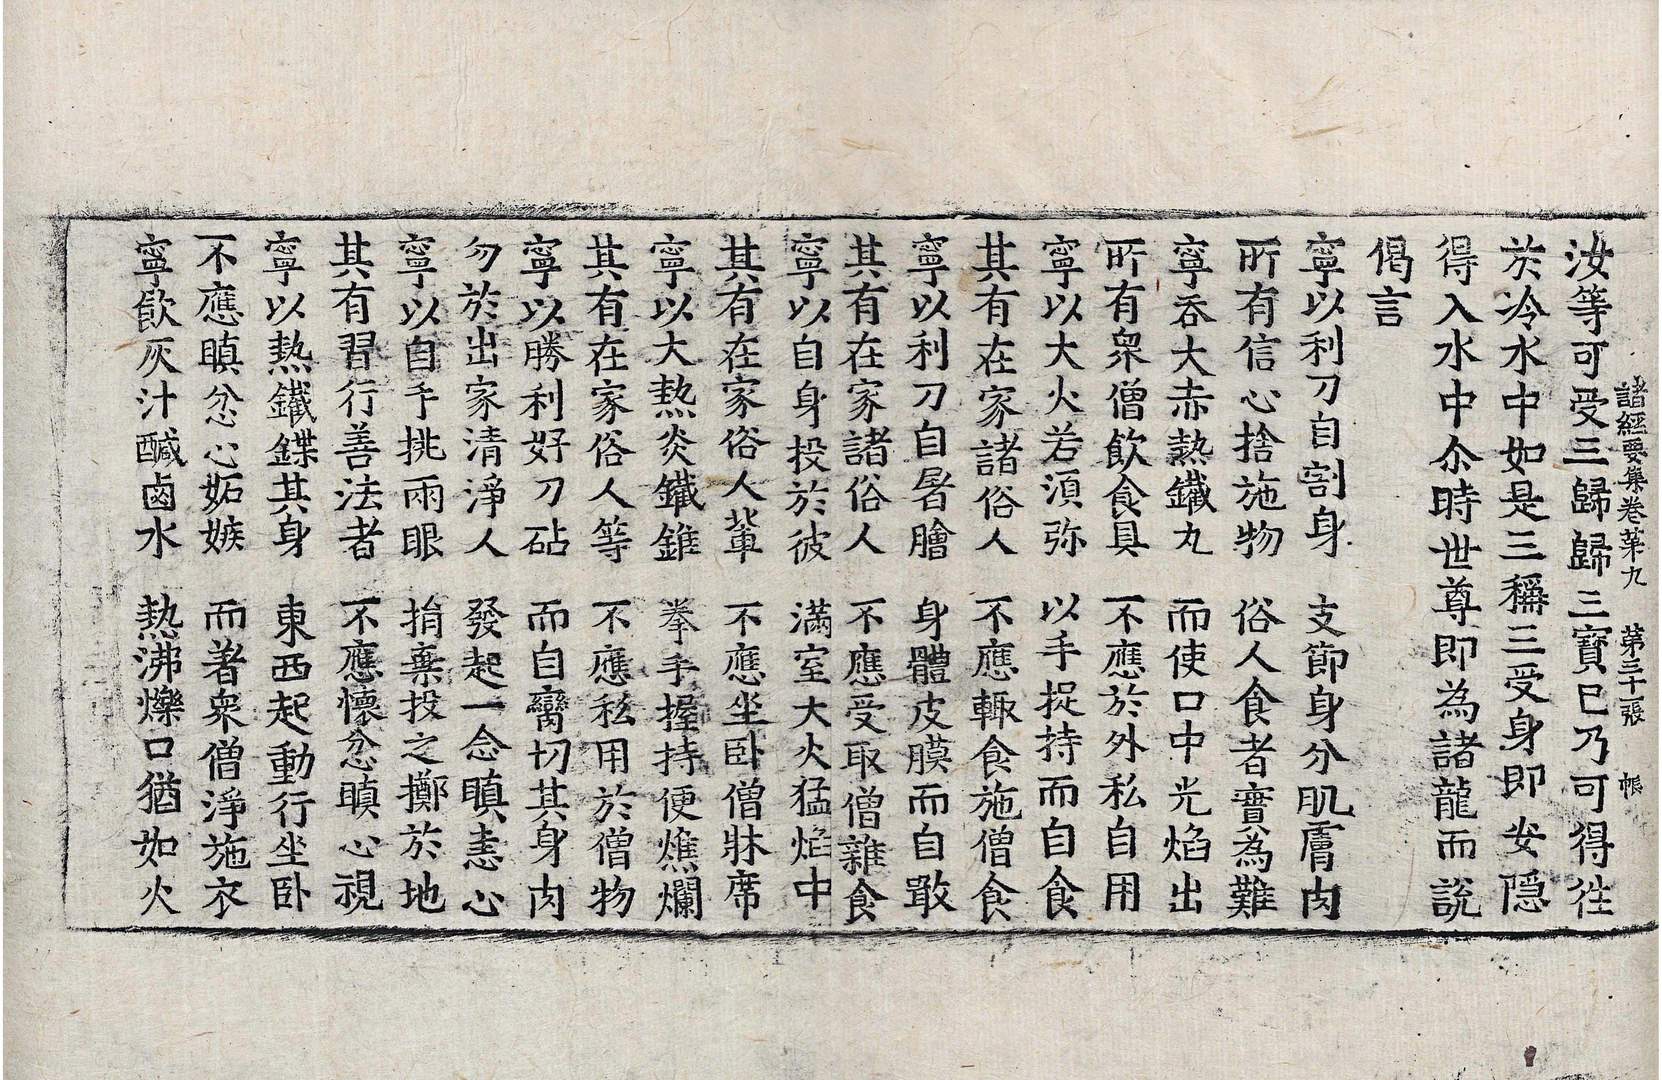 諸經要集卷苐九 第三十張 帳
汝等可受三歸歸三寶已乃可得徃
於冷水中如是三稱三受身即安隱
得入水中尒時世尊即為諸龍而說
偈言
寧以利刀自割身 支節身分肌膚肉
所有信心捨施物 俗人食者實為難
寧吞大赤熱鐵丸 而使口中光焰出
所有衆僧飲食具 不應於外私自用
寧以大火若須弥 以手捉持而自食
其有在家諸俗人 不應輙食施僧食
寧以利刀自屠膾 身體皮膜而自噉
其有在家諸俗人 不應受取僧雜食
寧以自身投於彼 滿室大火猛焰中
其有在家俗人輩 不應坐卧僧牀席
寧以大熱炎鐵錐 拳手握持便燋爛
其有在家俗人等 不應私用於僧物
寧以勝利好刀砧 而自臠切其身肉
勿於出家清淨人 發起一念瞋恚心
寧以自手挑兩眼 捐棄投之擲於地
其有習行善法者 不應懷忿瞋心視
寧以熱鐵鍱其身 東西起動行坐卧
不應瞋忿心妬嫉 而著衆僧淨施衣
寧飲灰汁醎鹵水 熱沸爍口猶如火